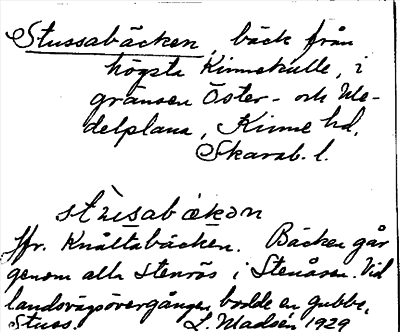 Stussabäcken, bäck från
högsta Kinnekulle, i
gränsen Öster- och Me-
delplana, Kinne hd,
Skarab. l.
stùsabækən
Jfr. Knältabäcken. Bäcken går
genom alla stenrös i Stenåsen. Vid
landsvägsövergången bodde en gubbe,
Stuss. L. Madsén 1929